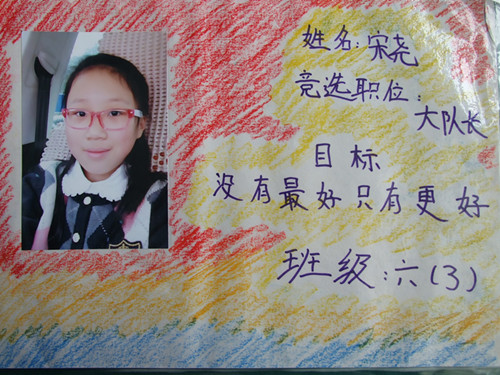 姓名:宋尧
竞选职位:
大队长
目标
没有最好只有更好
班级:六(3)